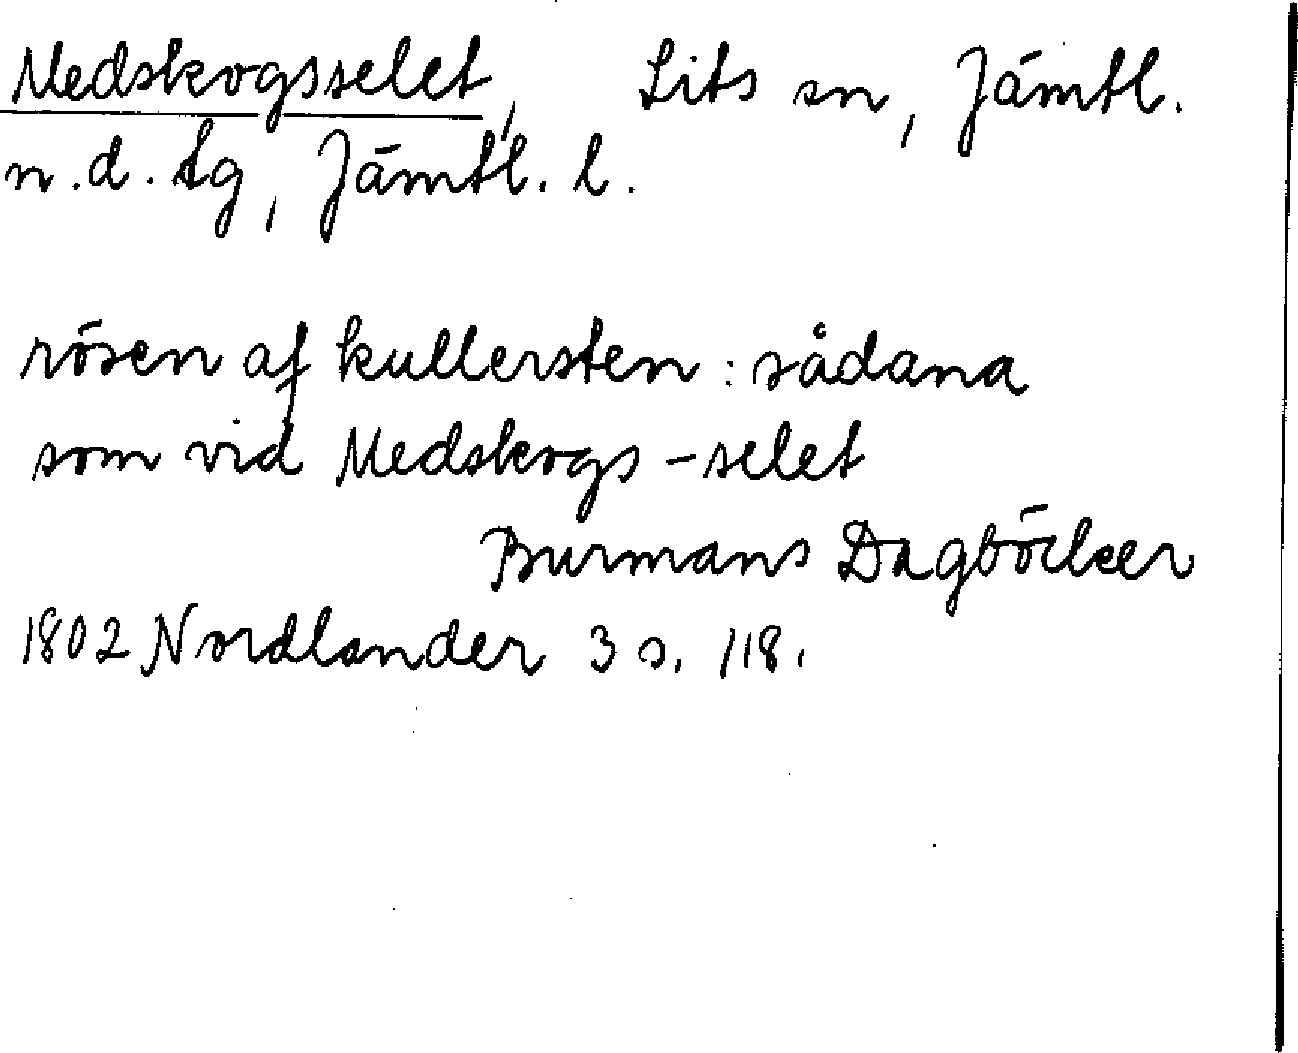 Medskogsselet, Lits sn, Jämtl.
n.d. tg, Jämtl. l.
rösen af kullersten: sådana
som vid Medskogs-selet
Burmans Dagböcker
1802 Nordlander 3 s. 118.